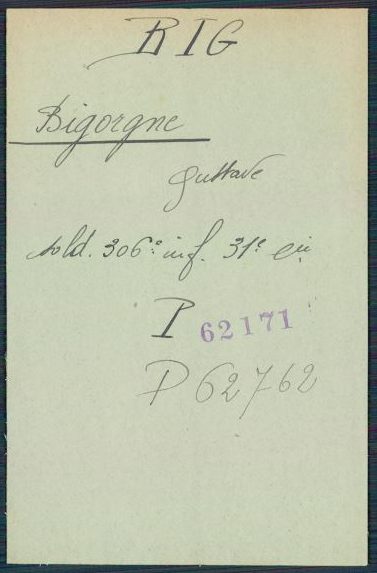 BIG
Bigorgne
Gustave
sold. 306e inf. 31e cie
P 62171
P 62762